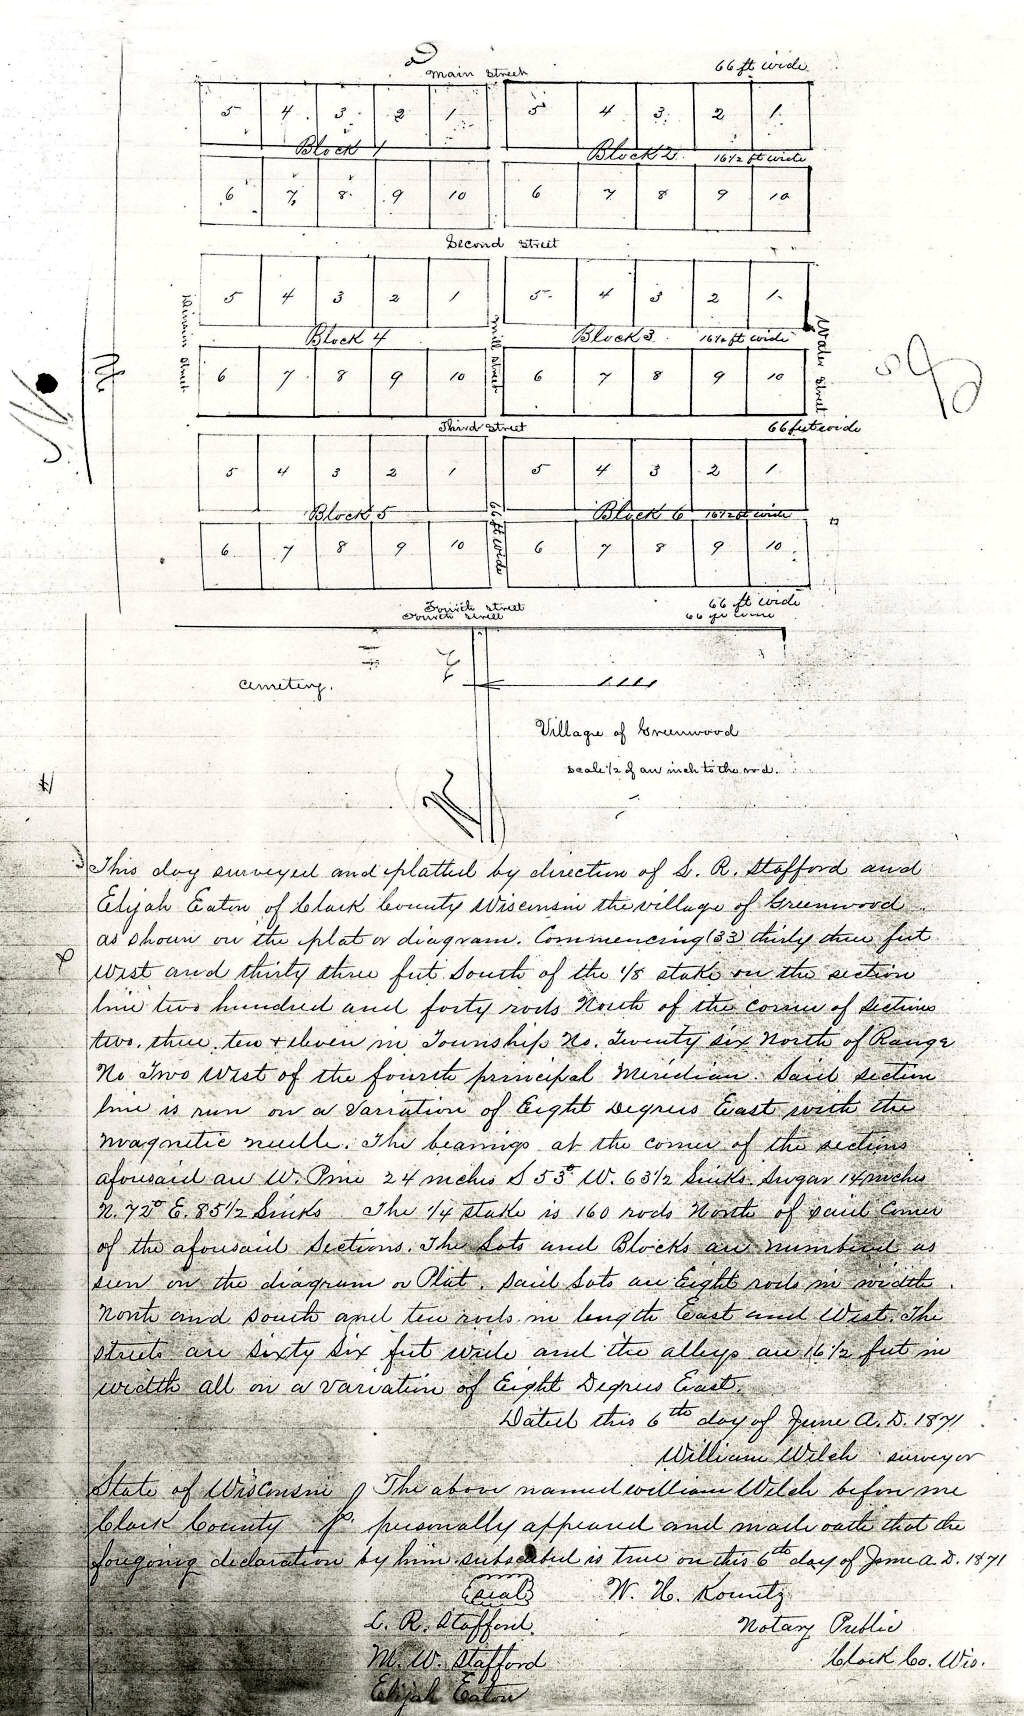 Main Street 66 ft wide
5 4 3 2 1 5 4 3 2 1
Block 1 Block 2 16½ ft wide
6 7 8 9 10 6 7 8 9 10
Second Street
5 4 3 2 1 5 4 3 2 1
Division Street
Mill Street
Water Street
Block 4 Block 3 16½ ft wide
6 7 8 9 10 6 7 8 9 10
Third Street 66 feet wide
5 4 3 2 1 5 4 3 2 1
Block 5 Block 6 16½ ft wide
66 ft wide
6 7 8 9 10 6 7 8 9 10
Fourth Street 66 ft wide
Fourth Street
cemetery.
Village of Greenwood
scale ½ of an inch to the rod.
This day surveyed and platted by direction of S. R. Stafford and
Elijah Eaton of Clark County Wisconsin the village of Greenwood
as shown on the plat or diagram. Commencing (33) thirty three feet
West and thirty three feet South of the 1/8 stake on the section
line two hundred and forty rods North of the corner of Sections
two, three, ten + eleven in Township No. Twenty six North of Range
No Two West of the fourth principal Meridian. Said section
line is run on a Variation of Eight Degrees East with the
magnetic needle. The bearings at the corner of the sections
aforesaid are W. Pine 24 inches S 53° W. 63½ Links. Sugar 14 inches
N. 72° E. 85½ Links The ¼ stake is 160 rods North of said Corner
of the aforesaid Sections. The Lots and Blocks are numbered as
seen on the diagram or Plat. Said Lots are Eight rods in width
North and South and ten rods in length East and West. The
streets are Sixty Six feet wide and the alleys are 16½ feet in
width all on a variation of Eight Degrees East.
Dated this 6th day of June A. D. 1871
William Welch surveyor
State of Wisconsin The above named William Welch before me
Clark County personally appeared and made oath that the
foregoing declaration by him subscribed is true on this 6th day of June A. D. 1871
Seal W. H. Kountz
L. R. Stafford. Notary Public
M. W. Stafford Clark Co. Wis.
Elijah Eaton